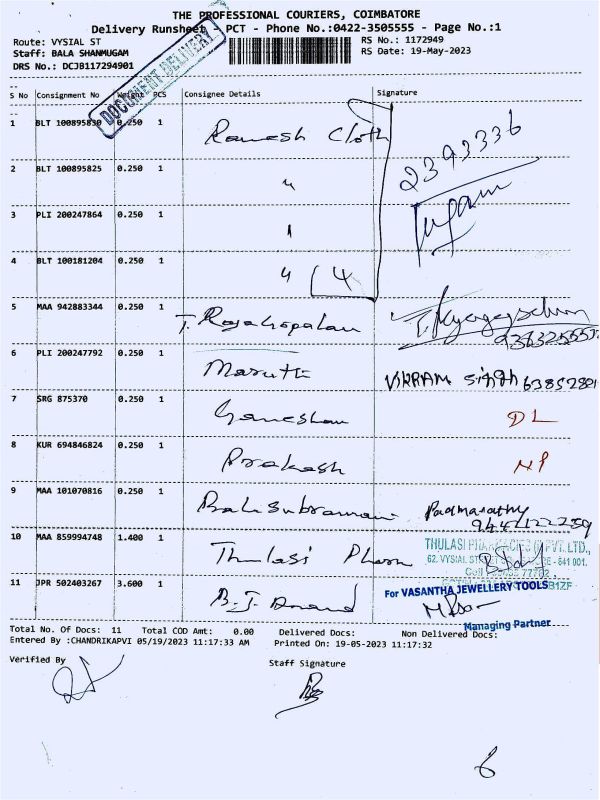 THE PROFESSIONAL COURIERS, COIMBATORE
Delivery Runsheet - PCT - Phone No.:0422-3505555 - Page No.:1
Route: VYSIAL ST RS No.: 1172949
Staff: BALA SHANMUGAM RS Date: 19-May-2023
DRS No.: DCJB117294901
DOCUMENT DELIVERY
S No Consignment No Weight PCS Consignee Details Signature
1 BLT 100895830 0.250 1 Ramesh Cloth
2393336
2 BLT 100895825 0.250 1 "
3 PLI 200247864 0.250 1
4 BLT 100181204 0.250 1 " 4
5 MAA 942883344 0.250 1 T. Rajagopalan
6 PLI 200247792 0.250 1 Maruthi VIKRAM Singh
7 SRG 875370 0.250 1 Ganeshan DL
8 KUR 694846824 0.250 1 Prakash NP
9 MAA 101070816 0.250 1 Balasubramani
10 MAA 859994748 1.400 1 Thulasi Pharm THULASI PHARMACIES PVT. LTD.,
62. VYSIAL ST - 641 001.
11 JPR 502403267 3.600 1 B.J. Anand For VASANTHA JEWELLERY TOOLS
Managing Partner
Total No. Of Docs: 11 Total COD Amt: 0.00 Delivered Docs: Non Delivered Docs:
Entered By :CHANDRIKAPVI 05/19/2023 11:17:33 AM Printed On: 19-05-2023 11:17:32
Verified By Staff Signature